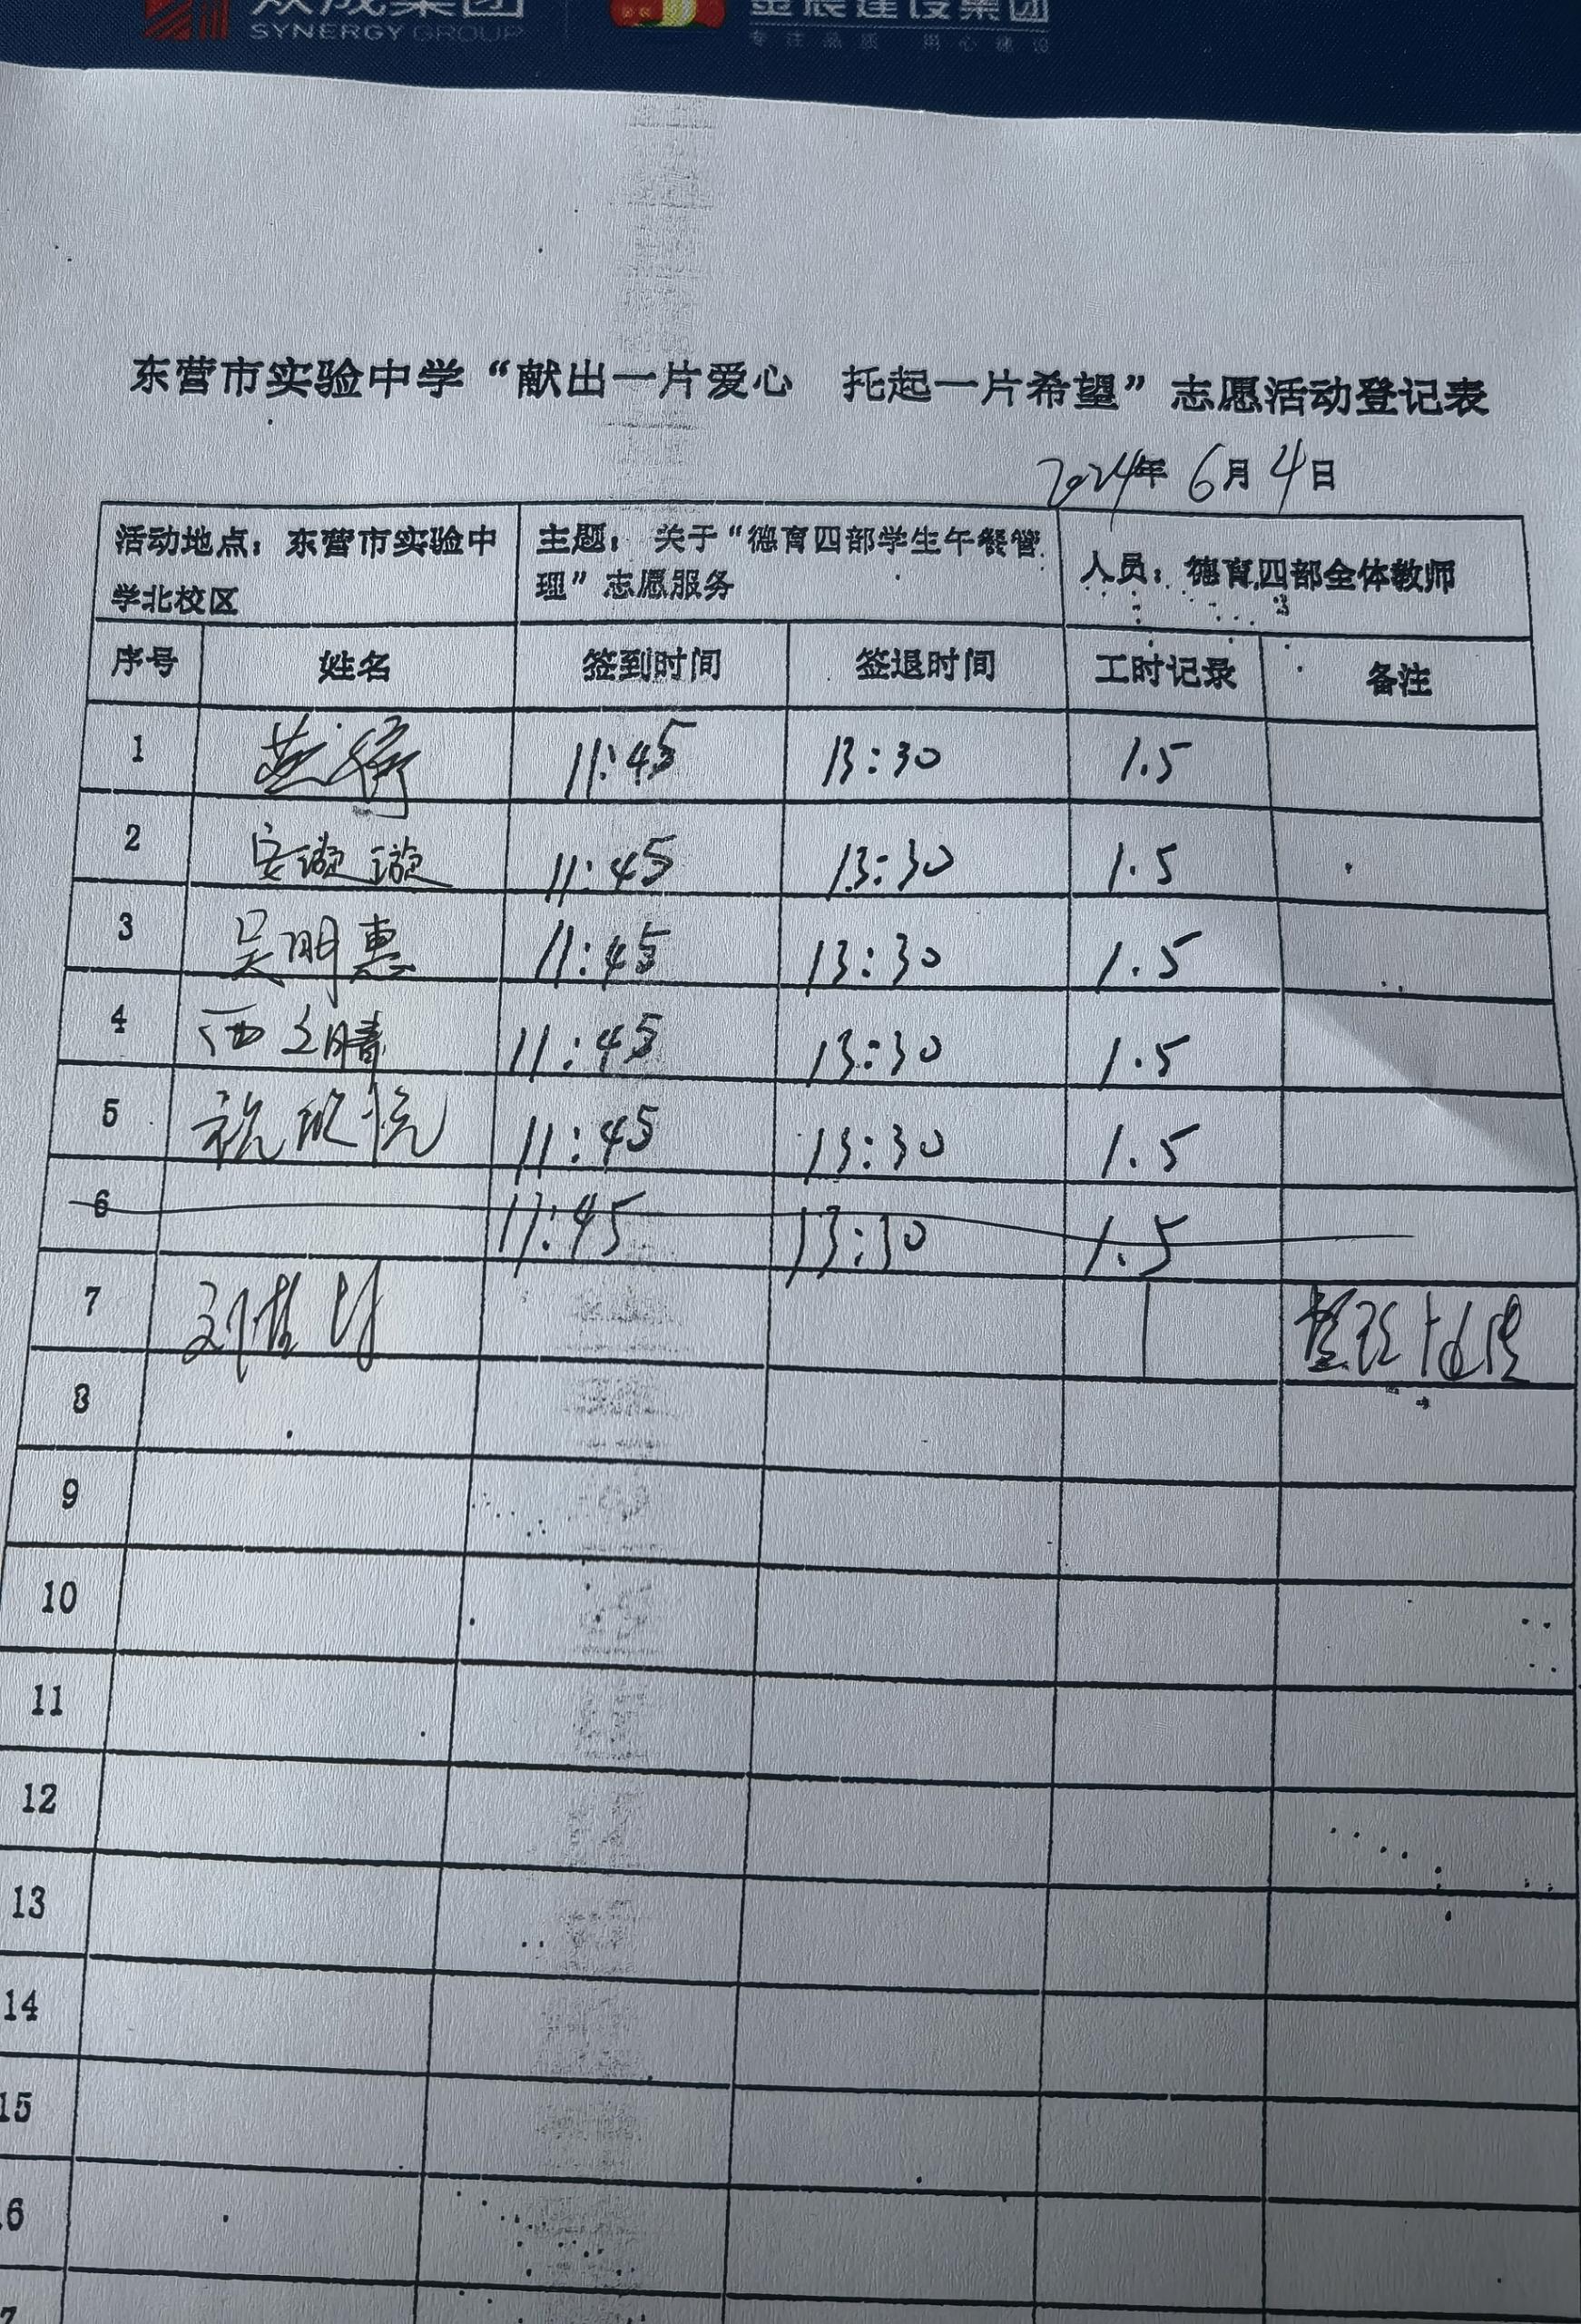 众成集团 金辰建设集团
SYNERGY GROUP 专注品质 用心建设
东营市实验中学“献出一片爱心 托起一片希望”志愿活动登记表
2024年 6月 4日
活动地点：东营市实验中学北校区
主题： 关于“德育四部学生午餐管理”志愿服务
人员：德育四部全体教师
序号 姓名 签到时间 签退时间 工时记录 备注
1 11:45 13:30 1.5
2 安璇璇 11:45 13:30 1.5
3 吴明惠 11:45 13:30 1.5
4 西文晴 11:45 13:30 1.5
5 祝欣悦 11:45 13:30 1.5
6 11:45 13:30 1.5
7 1
8
9
10
11
12
13
14
15